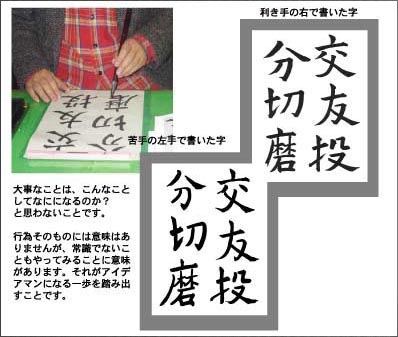 交友投
分切磨
利き手の右で書いた字
交友投
分切磨
苦手の左手で書いた字
交友投
分切磨
大事なことは、こんなこと
してなにになるのか?
と思わないことです。
行為そのものには意味はあ
りませんが、常識でないこ
ともやってみることに意味
があります。それがアイデ
アマンになる一歩を踏み出
すことです。